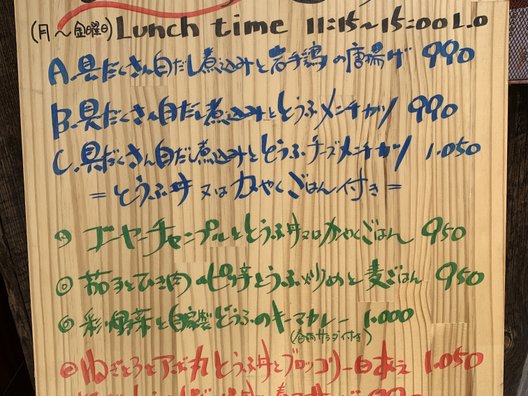 (月～金曜日) Lunch time 11:15～15:00 L.O
A.具だくさん白だし煮込みと岩手鶏の唐揚げ 990
B.具だくさん白だし煮込みととうふメンチカツ 990
C.具だくさん白だし煮込みととうふチーズメンチカツ 1.050
=とうふ丼又はかやくごはん付き=
ゴーヤーチャンプルととうふ丼又はかやくごはん 950
◎ 茄子とひき肉のピリ辛とうふ炒めと麦ごはん 950
◎ 彩り野菜と自家製とうふのキーマカレー 1.000
(付き)
ねぎとろとアボカドとうふ丼とブロッコリー白和え 1.050